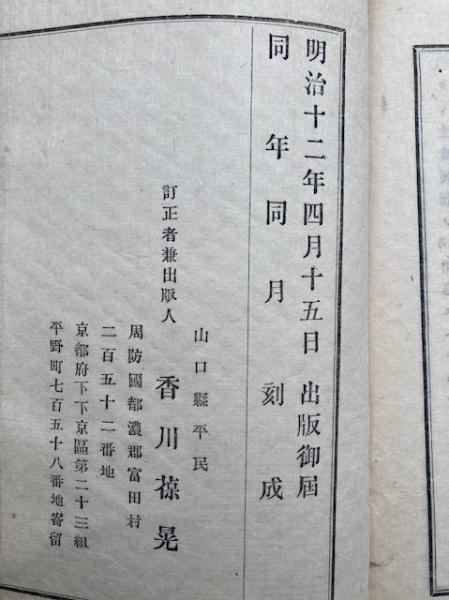 明治十二年四月十五日 出版御屆
同年同月 刻成
山口縣平民
訂正者兼出版人 香川葆晃
周防國都濃郡富田村
二百五十二番地
京都府下下京區第二十三組
平野町七百五十八番地寄留